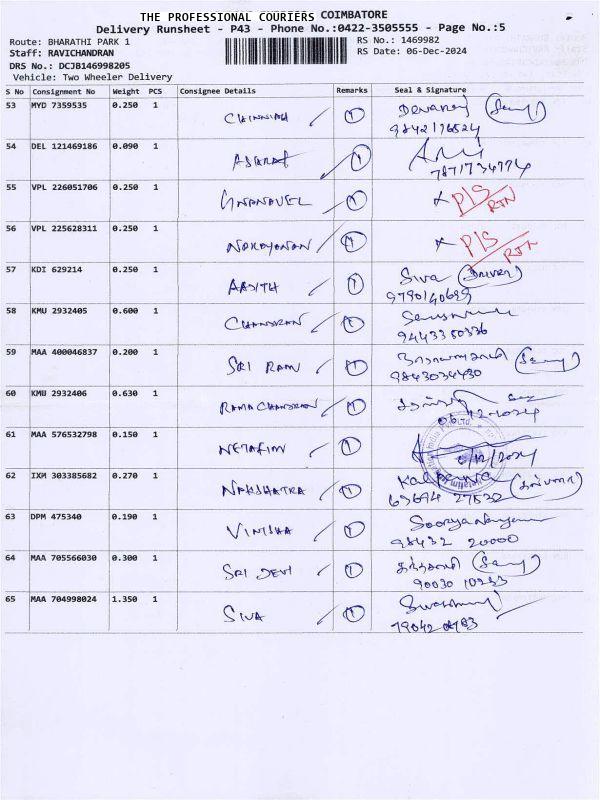 THE PROFESSIONAL COURIERS COIMBATORE
Delivery Runsheet - P43 - Phone No.:0422-3505555 - Page No.:5
Route: BHARATHI PARK 1 RS No.: 1469982
Staff: RAVICHANDRAN RS Date: 06-Dec-2024
DRS No.: DCJB146998205
Vehicle: Two Wheeler Delivery
S No Consignment No Weight PCS Consignee Details Remarks Seal & Signature
53 MYD 7359535 0.250 1 CHINNIAH 1 Devaraj
9842176524
54 DEL 121469186 0.090 1 ASARAF 1
7871734774
55 VPL 226051706 0.250 1 GNANAVEL 1 P/S RTN
56 VPL 225628311 0.250 1 NARAYANAN 1 P/S RTN
57 KDI 629214 0.250 1 1 Siva (Driver)
58 KMU 2932405 0.600 1 CHANDRAN 1
9443350336
59 MAA 400046837 0.200 1 SRI RAM 1
9843034430
60 KMU 2932406 0.630 1 RAMACHANDRAN 1
06-12-2024
61 MAA 576532798 0.150 1 NETAFIM 1
6/12/2024
62 IXM 303385682 0.270 1 NAKSHATRA 1 Kalpana
63694 27532
63 DPM 475340 0.190 1 VINISHA 1
98432 20000
64 MAA 705566030 0.300 1 SRI DEVI 1
90030 10233
65 MAA 704998024 1.350 1 SIVA 1